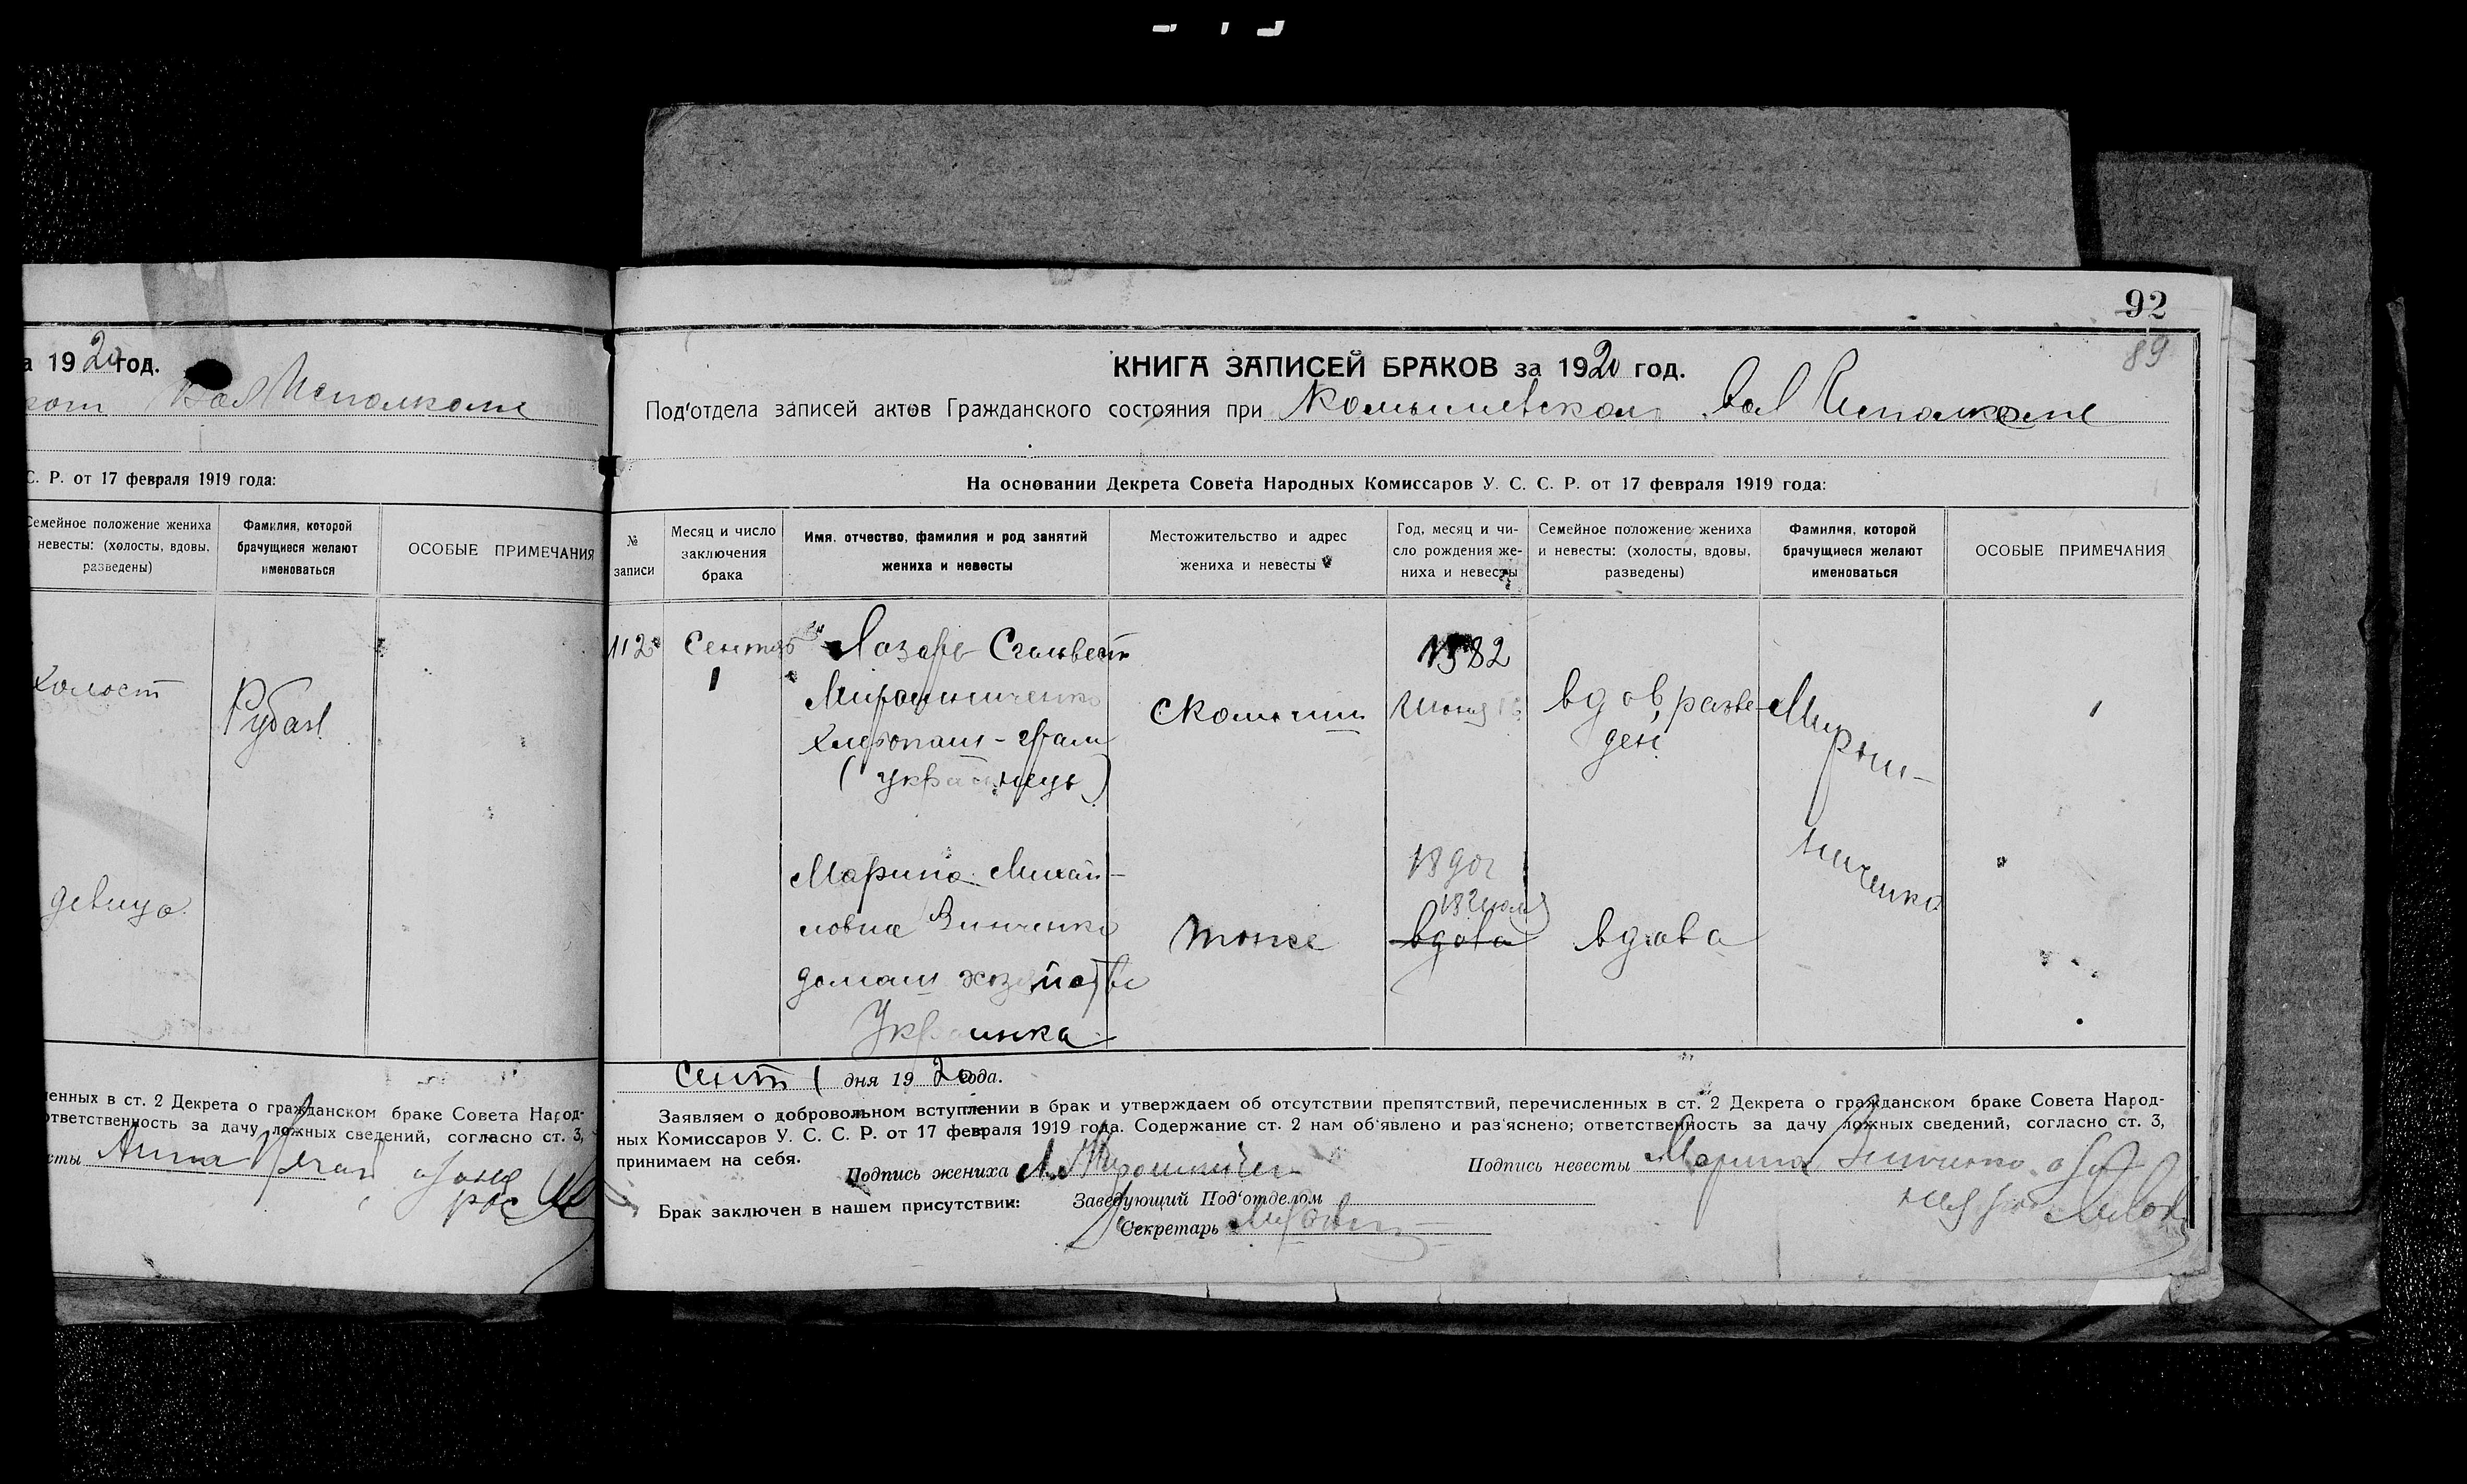 а 1920 год.
Вол Исполкоме
С. Р. от 17 февраля 1919 года:
Семейное положение жениха
невесты: (холосты, вдовы,
разведены)
Фамилия, которой
брачущиеся желают
именоваться
ОСОБЫЕ ПРИМЕЧАНИЯ
холост
девица
ненных в ст. 2 Декрета о гражданском браке Совета Народ-
ответственность за дачу ложных сведений, согласно ст. 3,
сты Анна
92
89
КНИГА ЗАПИСЕЙ БРАКОВ за 1920 год.
Под'отдела записей актов Гражданского состояния при Комышевском Вол Исполкоме
На основании Декрета Совета Народных Комиссаров У. С. С. Р. от 17 февраля 1919 года:
№
записи
Месяц и число
заключения
брака
Имя, отчество, фамилия и род занятий
жениха и невесты
Местожительство и адрес
жениха и невесты
Год, месяц и чи-
сло рождения же-
ниха и невесты
Семейное положение жениха
и невесты: (холосты, вдовы,
разведены)
Фамилия, которой
брачущиеся желают
именоваться
ОСОБЫЕ ПРИМЕЧАНИЯ
112
Сентяб
1
Лазарь Сильвест
Мирошниченко
хлебопаш - грам
(украинець)
1882
Июня
вдов, разве-
ден
Мирош-
ниченко
Марина Михай-
ловна Зинченко
домаш хозяйстве
Украинка
тоже
1890 г
18 июля
вдова
вдова
Сент 1 дня 1920 года.
Заявляем о добровольном вступлении в брак и утверждаем об отсутствии препятствий, перечисленных в ст. 2 Декрета о гражданском браке Совета Народ-
ных Комиссаров У. С. С. Р. от 17 февраля 1919 года. Содержание ст. 2 нам об'явлено и раз'яснено; ответственность за дачу ложных сведений, согласно ст. 3,
принимаем на себя.
Подпись жениха Л. Мирошничен
Подпись невесты Марина Зинченко
Брак заключен в нашем присутствии:
Заведующий Под'отделом
Секретарь